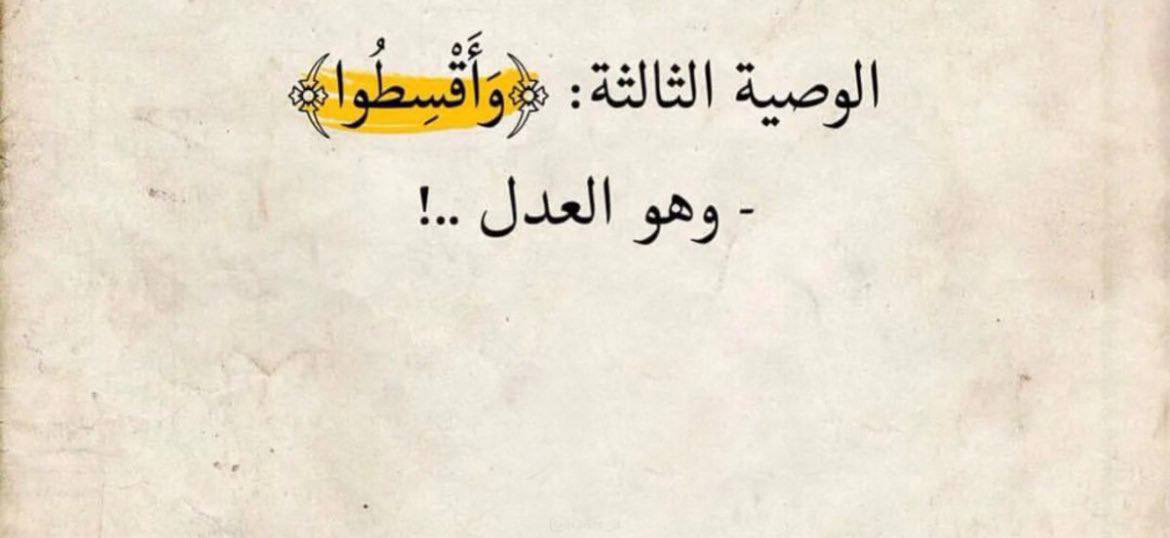 الوصية الثالثة: ﴿وَأَقْسِطُوا﴾
- وهو العدل ..!